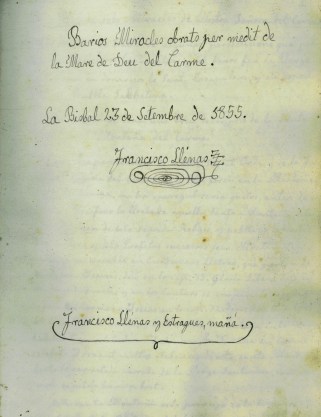 Barios Miracles obrats per medit de
la Mare de Deu del Carme.
La Bisbal 23 de Setembre de 1855.
Francisco Llénas
Francisco Llénas y Estragues, mañá.